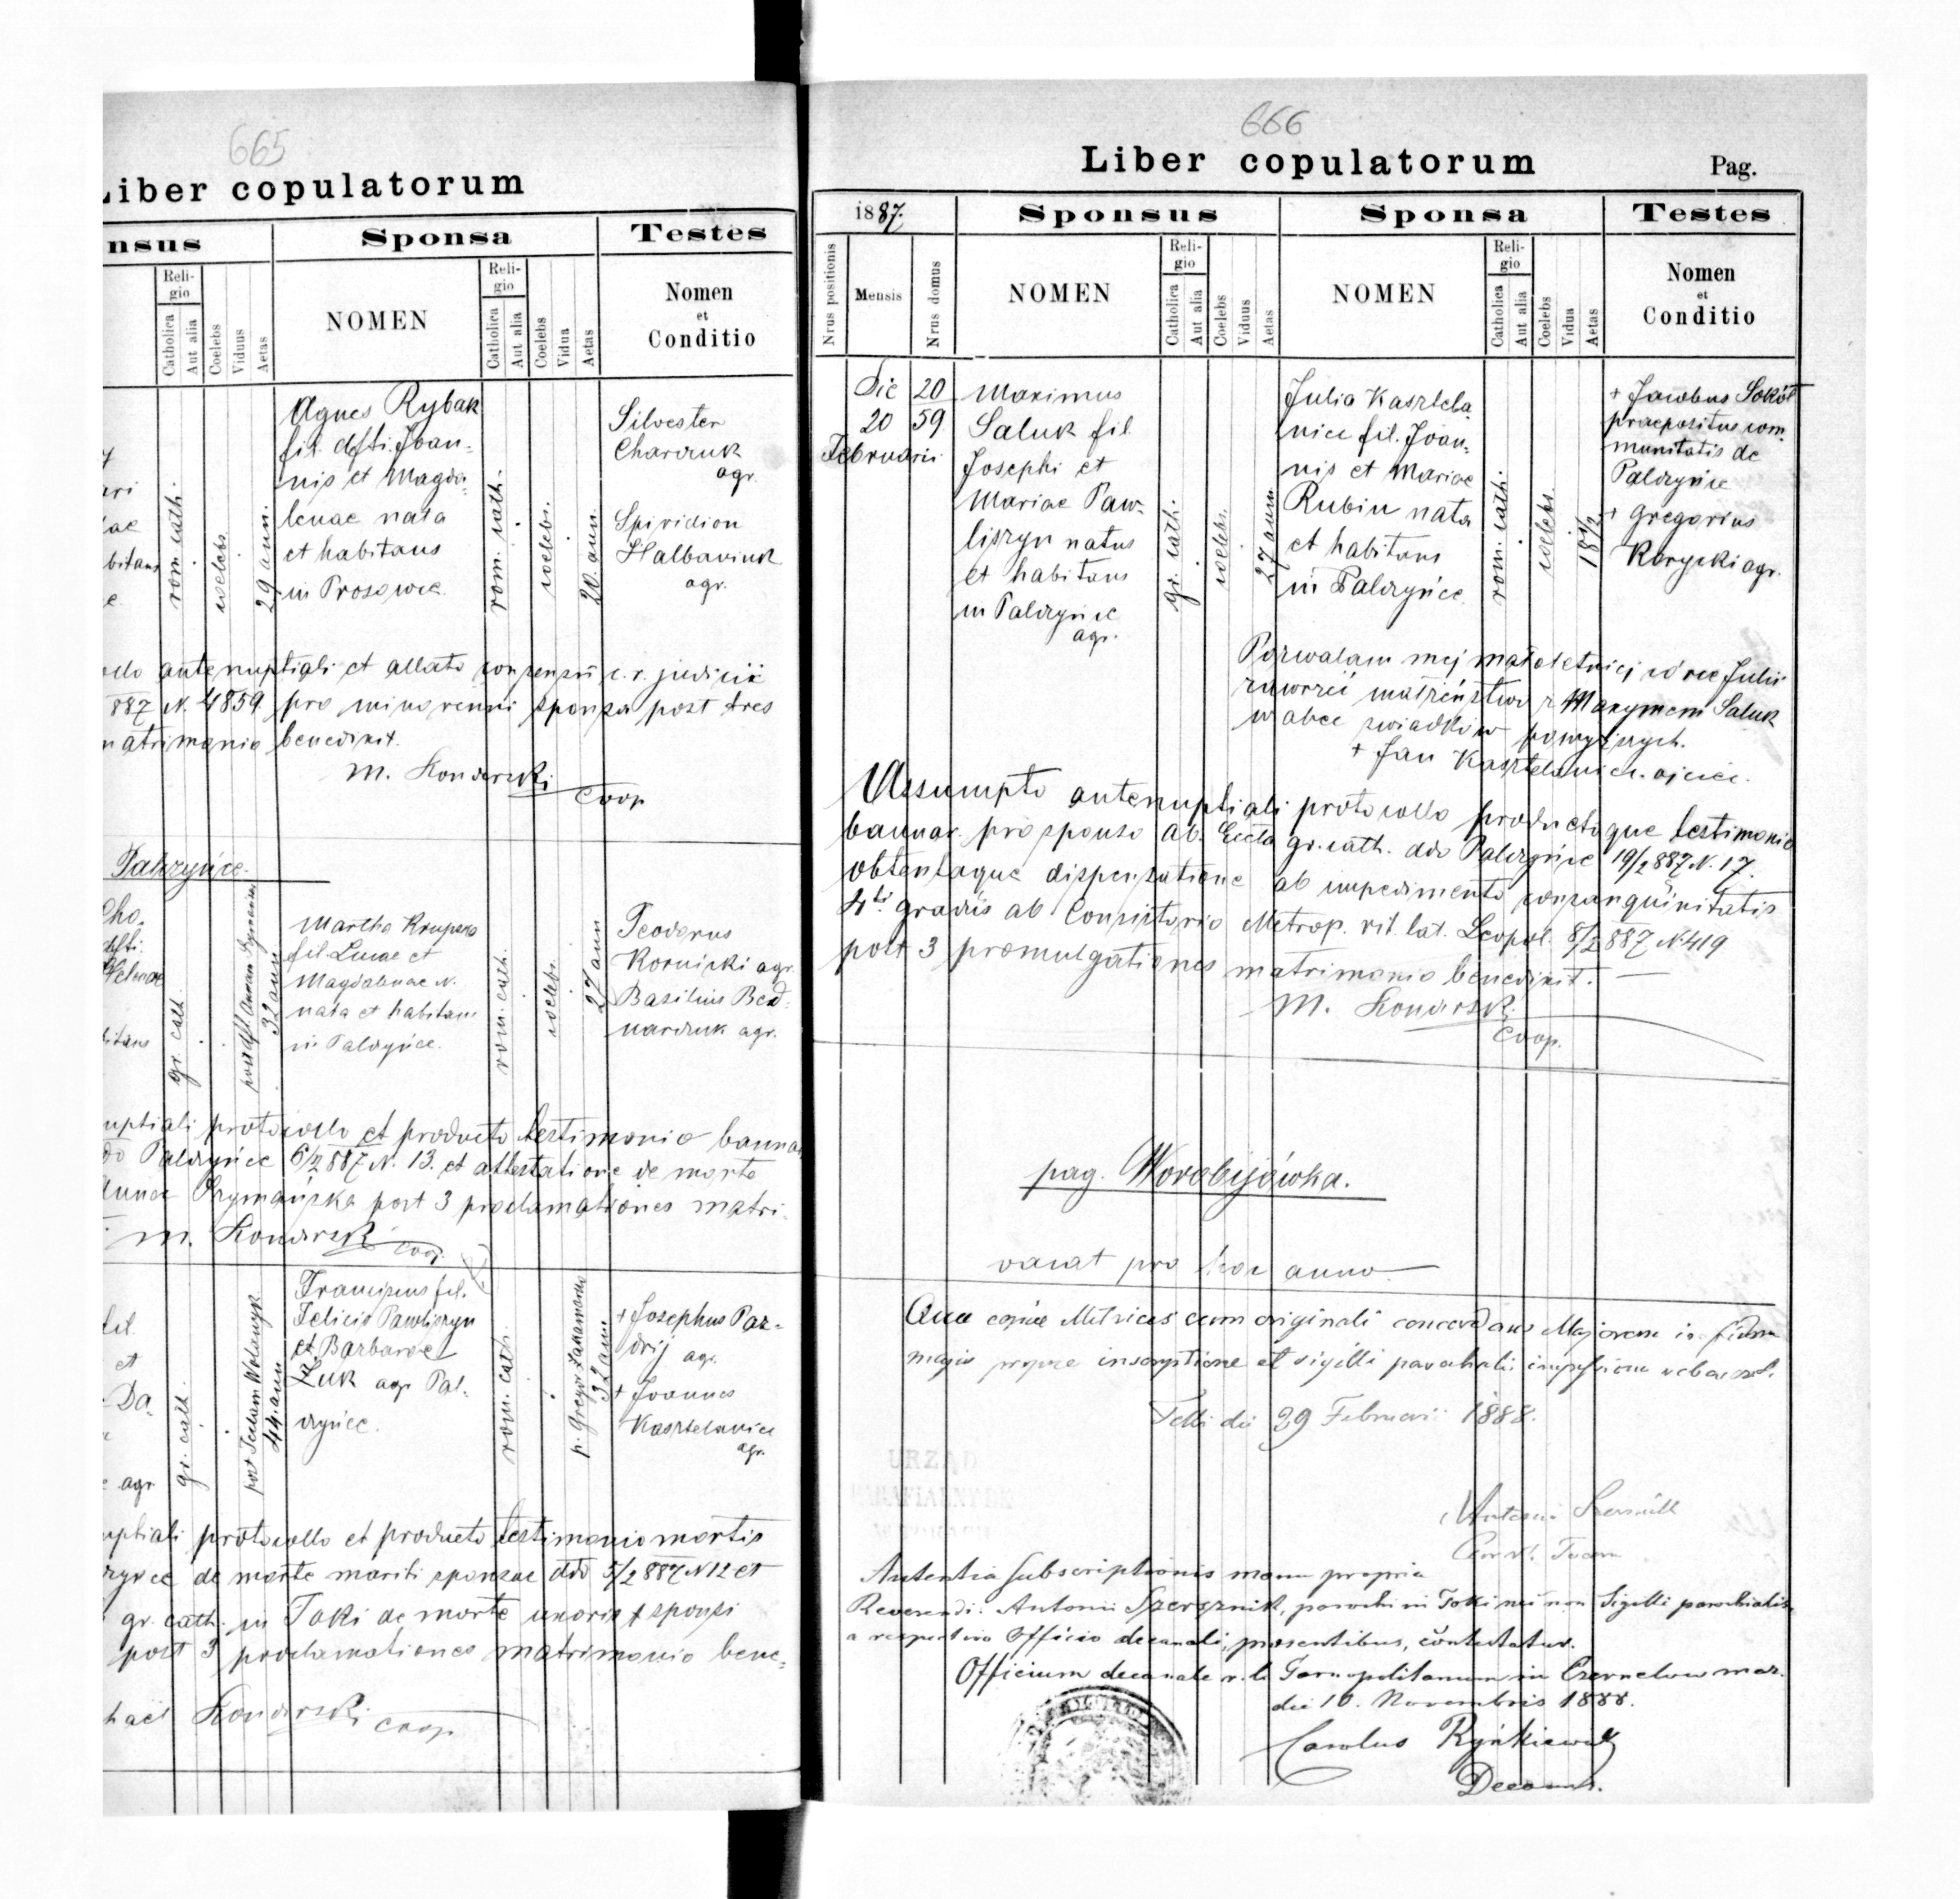 665
Liber copulatorum
nsus
Sponsa
Testes
Reli-
gio
Catholica
Aut alia
Coelebs
Viduus
Aetas
NOMEN
Reli-
gio
Catholica
Aut alia
Coelebs
Vidua
Aetas
Nomen
et
Conditio
rom. cath.
coelebs.
29 ann.
Agnes Rybak
fil. defti. Joan-
nis et Magda-
lenae nata
et habitans
in Prosowce.
rom. cath.
coelebs.
20. ann.
Silvester
Charczuk
agr.
Spiridion
Halbaviuk
agr.
ollo antenuptiali et allato consensu c. r. judicii
887 N. 4859. pro minorenni sponsa post tres
matrimonio benedixit.
M. Konarski
Coop
Palczyńce.
gr. cath.
32 ann
Martha Krupera
fil. Lucae et
Magdalenae N.
nata et habitans
in Palczyńce.
rom. cath.
coelebs.
27 ann
Teodorus
Kornicki agr.
Basilius Bed-
narczuk agr.
uptiali protocollo et producto testimonio bannar
do Palczyńce 6/2 887 N. 13. et attestatione de morte
post 3 proclamationes matri-
M. Konarski
coop.
gr. cath.
44. ann
Francisca fil.
Felicis Pawliszyn
et Barbarae
Łuk agr Pal-
czyńce.
rom. cath.
32 ann
+ Josephus Paz-
drij agr.
+ Joannes
Kasztelanice
agr.
uptiali protocollo et producto testimonio mortis
de morte mariti sponsae ddo 5/2 887 N 12 et
gr. cath. in Toki de morte uxoris sponsi
post 3 proclamationes matrimonio bene-
hael Konarski coop
666
Liber copulatorum
Pag.
1887.
Sponsus
Sponsa
Testes
Nrus positionis
Mensis
Nrus domus
NOMEN
Reli-
gio
Catholica
Aut alia
Coelebs
Viduus
Aetas
NOMEN
Reli-
gio
Catholica
Aut alia
Coelebs
Vidua
Aetas
Nomen
et
Conditio
Die
20
Februarii
20
59
Maximus
Saluk fil.
Josephi et
Mariae Paw-
liszyn natus
et habitans
in Palczyńce
agr.
gr. cath.
coelebs.
27 ann
Julia Kasztela
nice fil. Joan-
nis et Mariae
Rubin nata
et habitans
in Palczyńce.
rom. cath.
coelebs.
18 1/2
+ Jacobus Sokół
praepositus com-
munitatis de
Palczyńce
+ Gregorius
Korycki agr.
Pozwalam mej małoletniej córce Julii
zawrzeć małżeństwo z Maxymem Saluk
w obec swiadków powyższych.
+ Jan Kasztelanice. ojciec.
Assumpto antenuptiali protocollo productoque testimonio
bannar. pro sponso ab Eccla gr. cath. ddo Palczyńce 19/2 887 N. 17.
obtentaque dispensatione ab impedimento consanguinitatis
4ti gradus ab Consistorio Metrop. rit. lat. Leopol. 8/2 887 N 419
post 3 promulgationes matrimonio benedixit.
M. Konarski
Coop.
pag. Worobijówka.
vacat pro hoc anno
copiae Metrices cum originali concordans Majorem in fidem
propriae inscriptione et sigilli parochialis
29 Februarii 1888.
URZĄD
Antoni
Autentia subscriptionis manu propria
Reverendi: Antonii Szersznik, parochi in Toki nec non Sigilli parochialis
a respectivo Officio decanali, praesentibus, contestatur.
Officium decanale r. l. Tarnopolitanum in Czernelow maz.
die 10. Novembris 1888.
Carolus Rynkiewicz
Decanus.